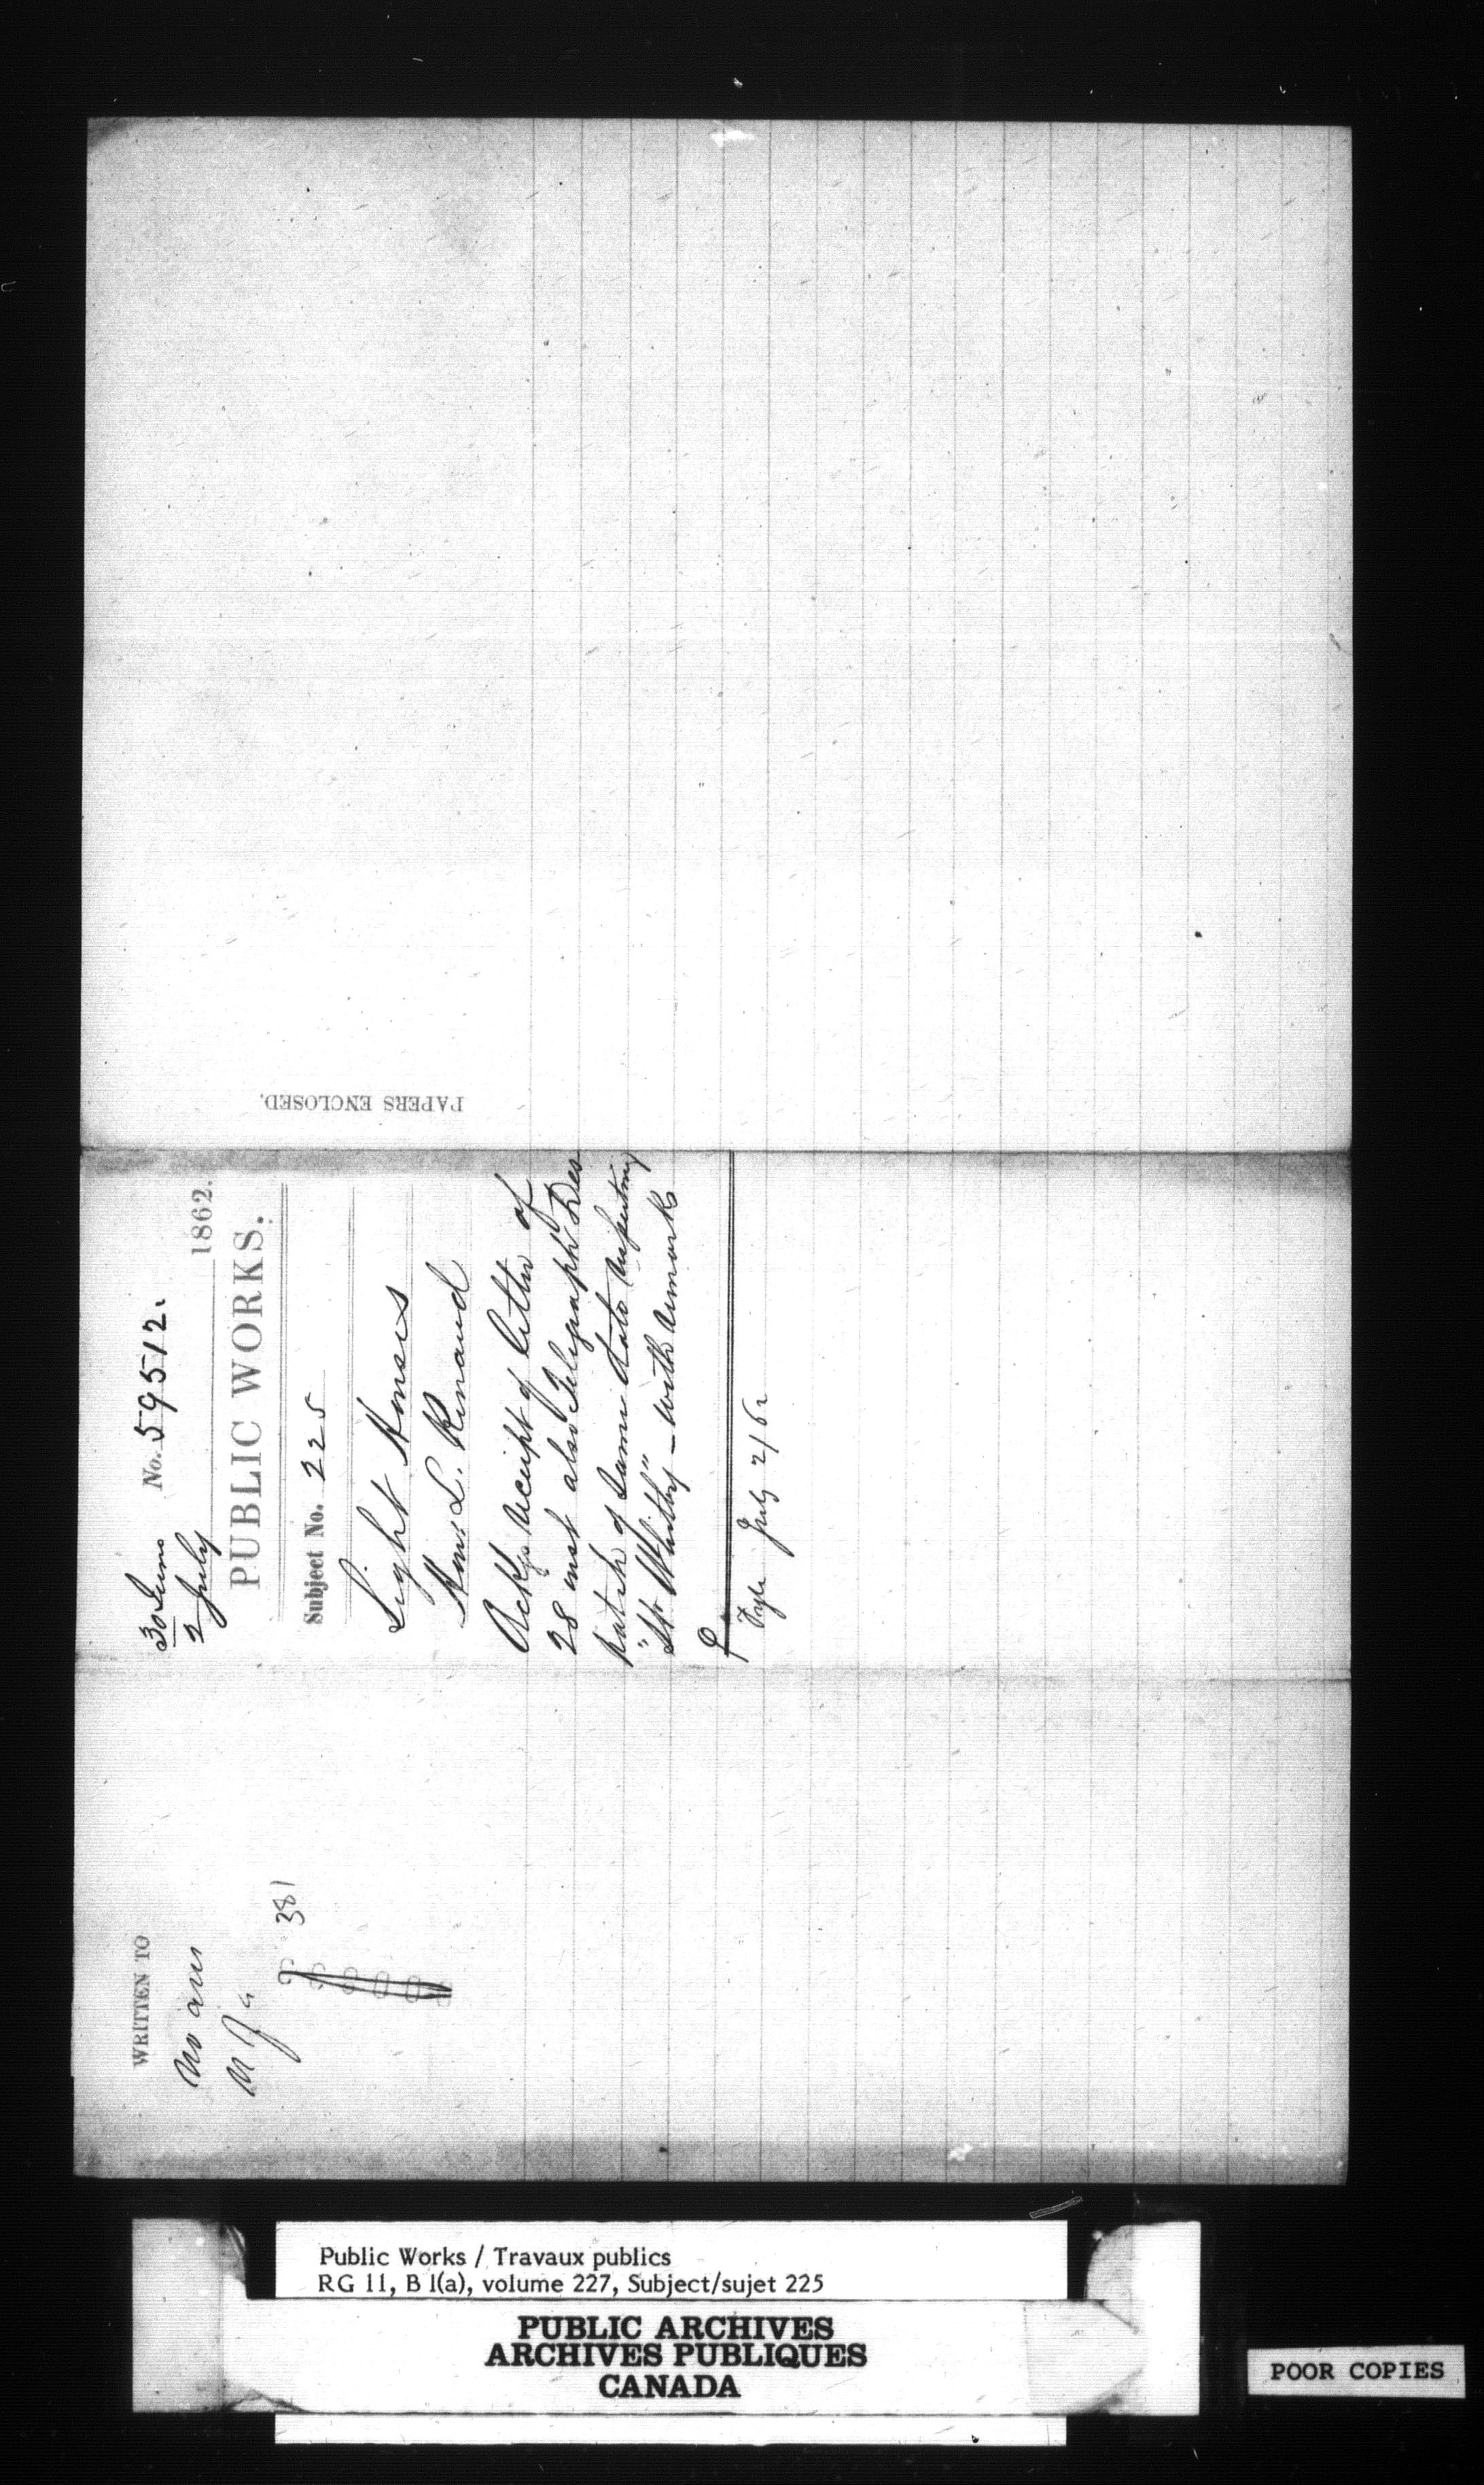 30 June No. 59512.
2 July 1862.
PUBLIC WORKS.
Subject No. 225
Light Houses
Hon: L. Renaud
Ackgs receipt of letter of
28 inst also Telegraph Des
patch of same date respecting
"Str Whitby" - with remarks
Fyle July 2/62
PAPERS ENCLOSED.
WRITTEN TO
No ans
381
Public Works / Travaux publics
RG 11, B 1(a), volume 227, Subject/sujet 225
PUBLIC ARCHIVES
ARCHIVES PUBLIQUES
CANADA
POOR COPIES